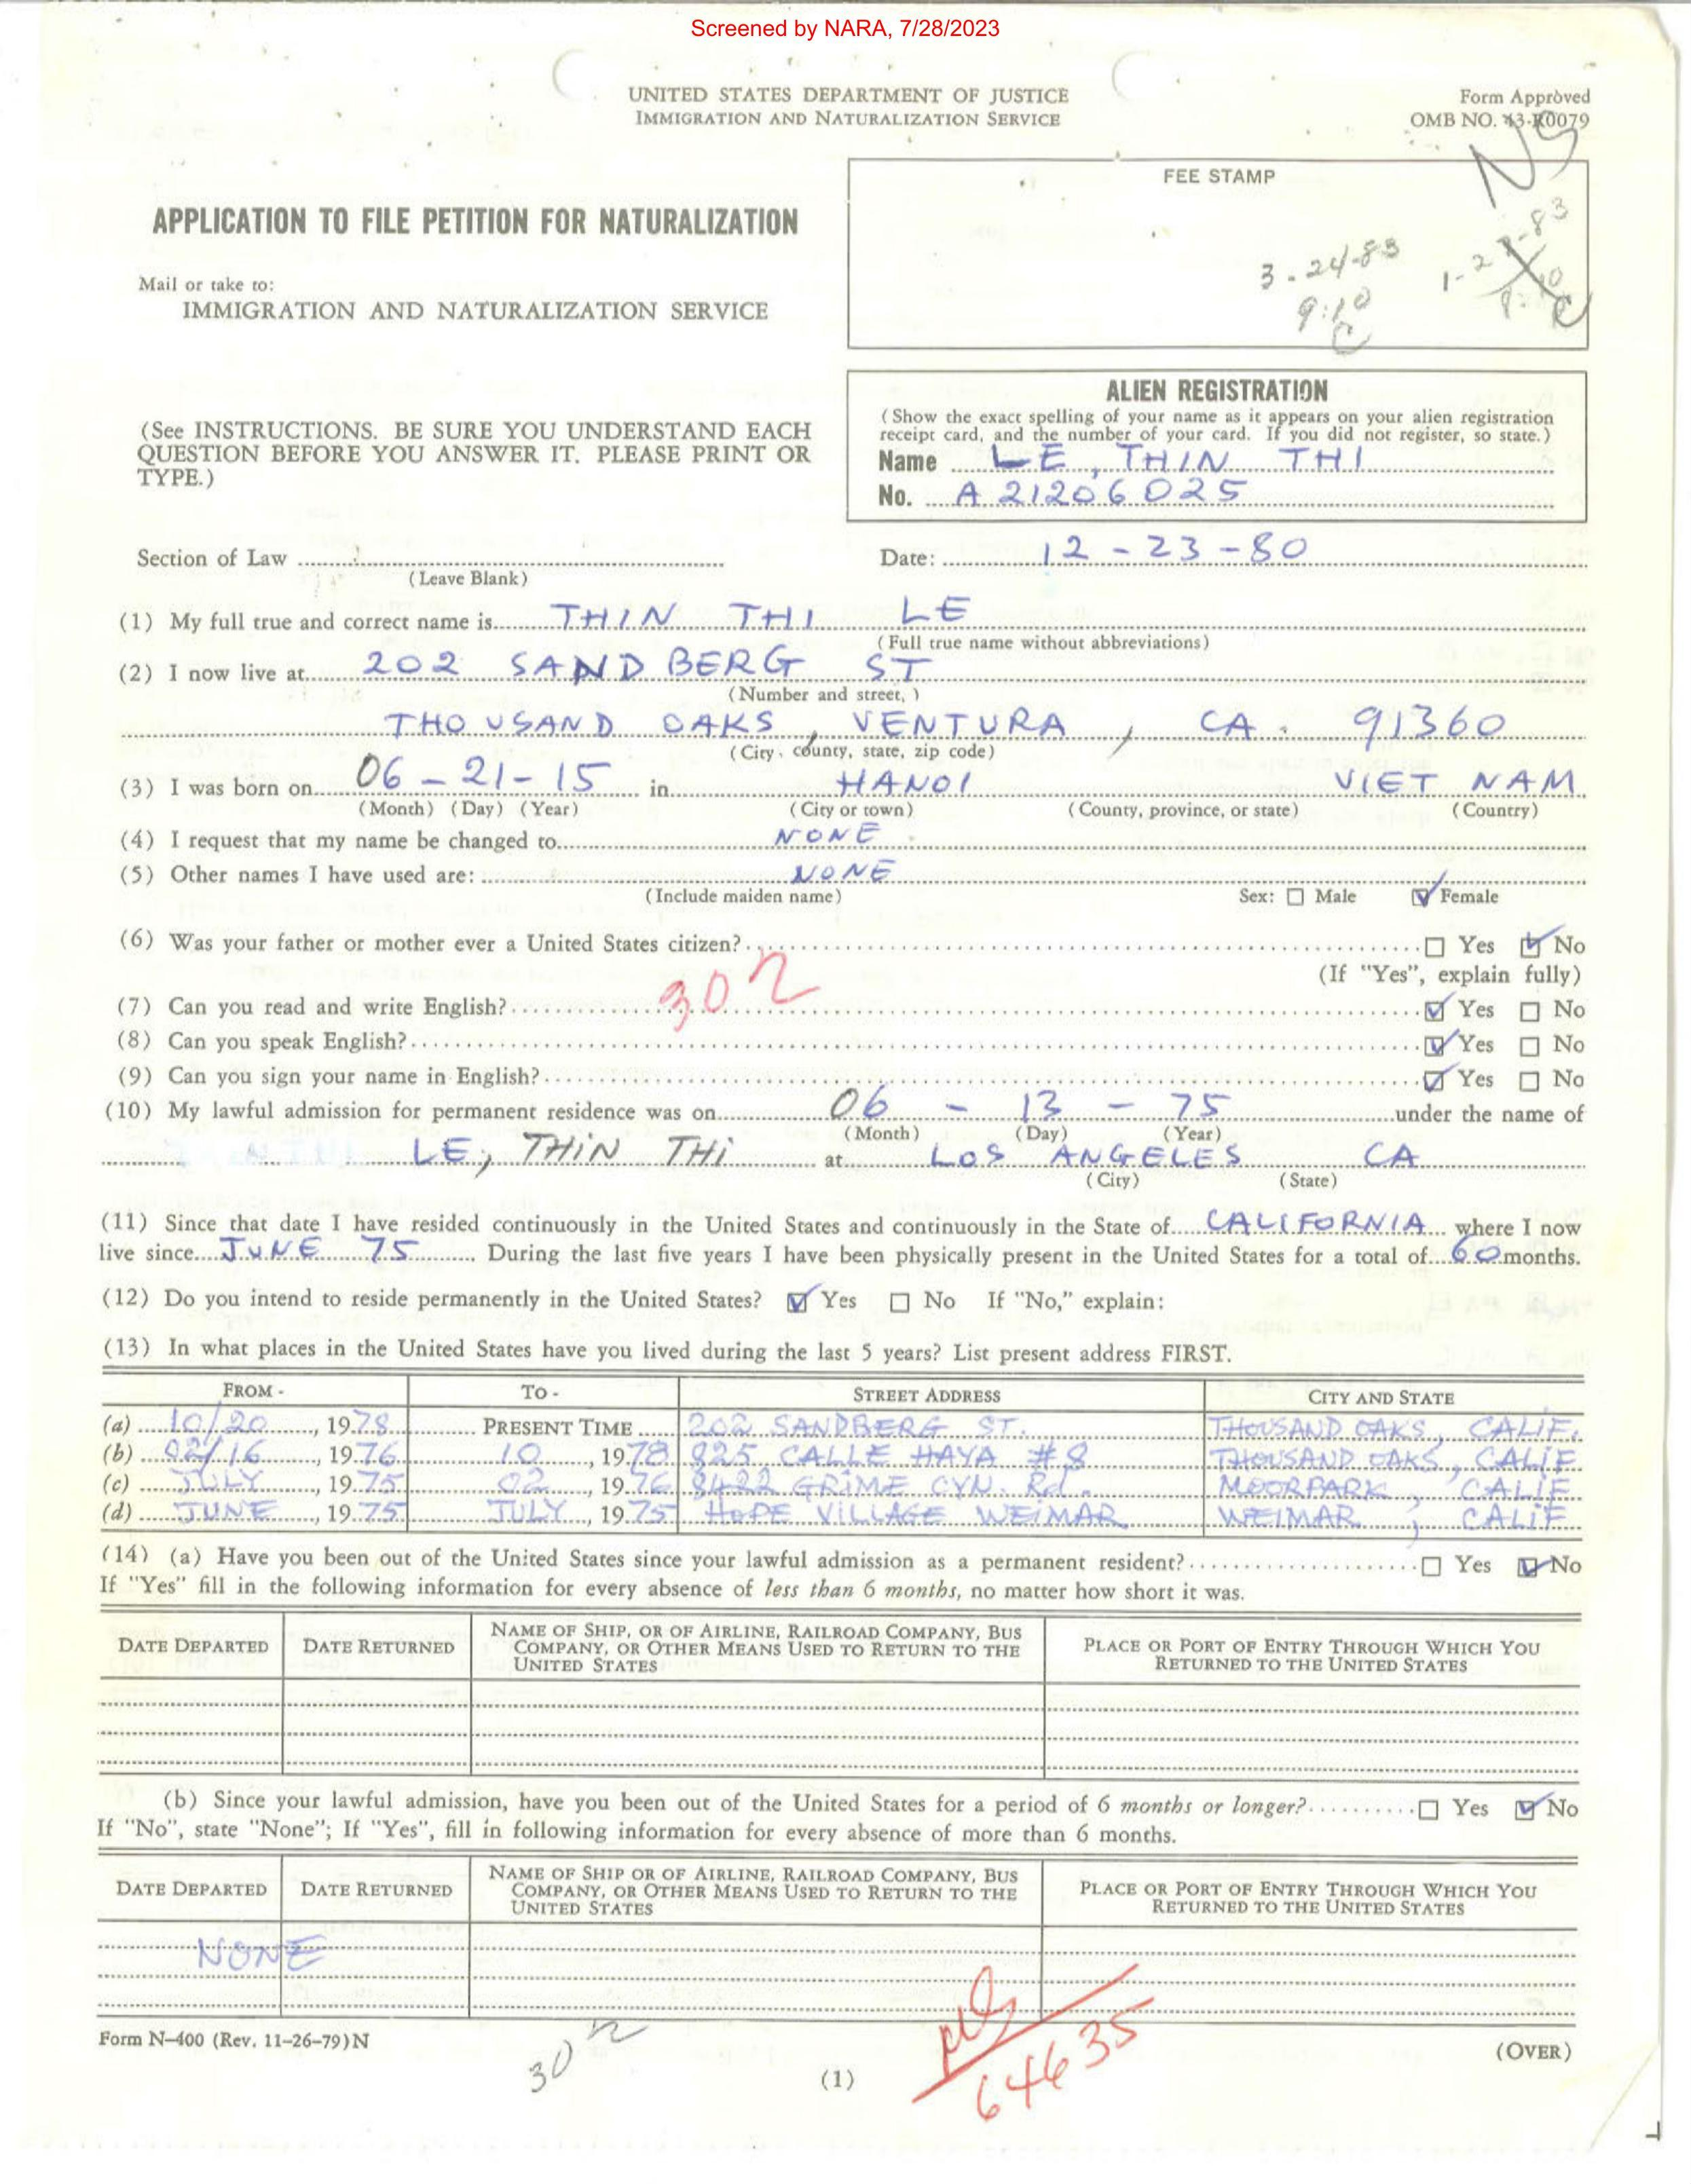 Screened by NARA, 7/28/2023
UNITED STATES DEPARTMENT OF JUSTICE
IMMIGRATION AND NATURALIZATION SERVICE
Form Approved
OMB NO. 43-R0079
NS
FEE STAMP
3-24-83
9:10
C
APPLICATION TO FILE PETITION FOR NATURALIZATION
Mail or take to:
IMMIGRATION AND NATURALIZATION SERVICE
(See INSTRUCTIONS. BE SURE YOU UNDERSTAND EACH
QUESTION BEFORE YOU ANSWER IT. PLEASE PRINT OR
TYPE.)
ALIEN REGISTRATION
(Show the exact spelling of your name as it appears on your alien registration
receipt card, and the number of your card. If you did not register, so state.)
Name LE, THIN THI
No. A 21206025
Section of Law
(Leave Blank)
Date: 12-23-80
(1) My full true and correct name is THIN THI LE
(Full true name without abbreviations)
(2) I now live at 202 SAND BERG ST
(Number and street,)
THOUSAND OAKS, VENTURA, CA. 91360
(City, county, state, zip code)
(3) I was born on 06-21-15 in HANOI VIET NAM
(Month) (Day) (Year) (City or town) (County, province, or state) (Country)
(4) I request that my name be changed to NONE
(5) Other names I have used are: NONE
(Include maiden name) Sex: Male Female
(6) Was your father or mother ever a United States citizen? Yes No
(If "Yes", explain fully)
302
(7) Can you read and write English? Yes No
(8) Can you speak English? Yes No
(9) Can you sign your name in English? Yes No
(10) My lawful admission for permanent residence was on 06 - 13 - 75 under the name of
(Month) (Day) (Year)
LE, THIN THI at LOS ANGELES CA
(City) (State)
(11) Since that date I have resided continuously in the United States and continuously in the State of CALIFORNIA where I now
live since JUNE 75. During the last five years I have been physically present in the United States for a total of 60 months.
(12) Do you intend to reside permanently in the United States? Yes No If "No," explain:
(13) In what places in the United States have you lived during the last 5 years? List present address FIRST.
FROM - TO - STREET ADDRESS CITY AND STATE
(a) 10/20, 1978 PRESENT TIME 202 SANDBERG ST. THOUSAND OAKS, CALIF.
(b) 02/16, 1976 10, 1978 825 CALLE HAYA #8 THOUSAND OAKS, CALIF
(c) JULY, 1975 02, 1976 8422 GRIME CYN. Rd. MOORPARK, CALIF
(d) JUNE, 1975 JULY, 1975 HOPE VILLAGE WEIMAR WEIMAR, CALIF
(14) (a) Have you been out of the United States since your lawful admission as a permanent resident? Yes No
If "Yes" fill in the following information for every absence of less than 6 months, no matter how short it was.
DATE DEPARTED DATE RETURNED NAME OF SHIP, OR OF AIRLINE, RAILROAD COMPANY, BUS COMPANY, OR OTHER MEANS USED TO RETURN TO THE UNITED STATES PLACE OR PORT OF ENTRY THROUGH WHICH YOU RETURNED TO THE UNITED STATES
(b) Since your lawful admission, have you been out of the United States for a period of 6 months or longer? Yes No
If "No", state "None"; If "Yes", fill in following information for every absence of more than 6 months.
DATE DEPARTED DATE RETURNED NAME OF SHIP OR OF AIRLINE, RAILROAD COMPANY, BUS COMPANY, OR OTHER MEANS USED TO RETURN TO THE UNITED STATES PLACE OR PORT OF ENTRY THROUGH WHICH YOU RETURNED TO THE UNITED STATES
NONE
Form N-400 (Rev. 11-26-79)N
(OVER)
64635
(1)